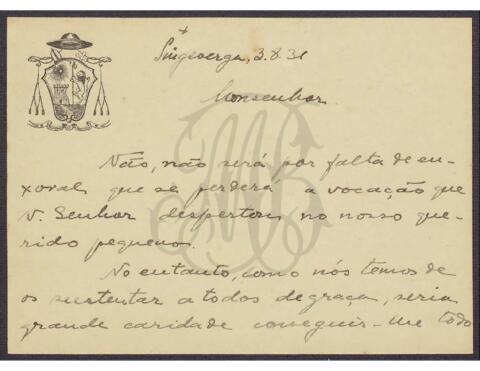 +
Singeverga, 3.8.31
Monsenhor.
Não, não será por falta de en-
xoval que se perderá a vocação que
N. Senhor despertou no nosso que-
rido pequeno.
No entanto, como nós temos de
os sustentar a todos de graça, seria
grande caridade conseguir-me todo